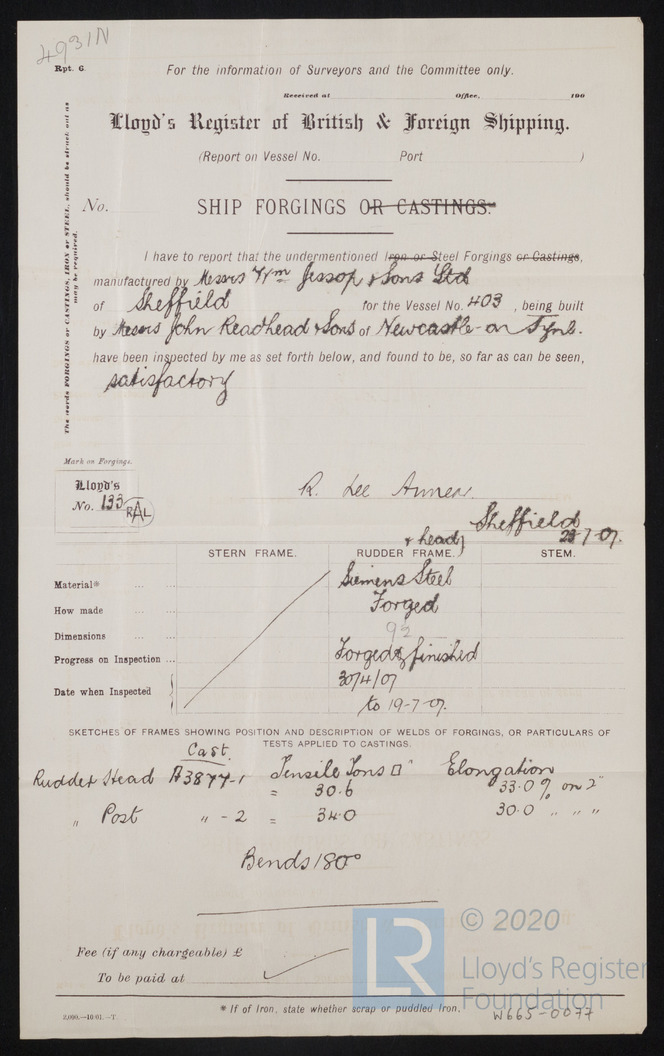 4931N
Rpt. 6.
For the information of Surveyors and the Committee only.
Received at Office, 190
Lloyd's Register of British & Foreign Shipping.
(Report on Vessel No. Port )
No. SHIP FORGINGS OR CASTINGS.
The words FORGINGS or CASTINGS, IRON or STEEL, should be struck out as
may be required.
I have to report that the undermentioned Iron or Steel Forgings or Castings,
manufactured by Messrs Wm Jessop & Sons Ltd
of Sheffield for the Vessel No. 403, being built
by Messrs John Readhead & Sons of Newcastle-on Tyne.
have been inspected by me as set forth below, and found to be, so far as can be seen,
satisfactory
Mark on Forgings.
Lloyd's
No. 133 RAL
R. Lee
Sheffield
23-7-07.
& head}
STERN FRAME. RUDDER FRAME. STEM.
Material* ... Siemens Steel
How made ... Forged
Dimensions ... ...
Progress on Inspection ... Forged & finished
Date when Inspected 30/4/07
to 19-7-07.
SKETCHES OF FRAMES SHOWING POSITION AND DESCRIPTION OF WELDS OF FORGINGS, OR PARTICULARS OF
TESTS APPLIED TO CASTINGS.
Cast.
Rudder Head A3877-1 Tensile Tons □" Elongation
= 30.6 33.0% on 2"
" Post " - 2 = 34.0 30.0 " " "
Bends 180°
Fee (if any chargeable) £
To be paid at
* If of Iron, state whether scrap or puddled Iron.
2,000.—10·01.—T.
W665-0077
LR
© 2020
Lloyd's Register
Foundation